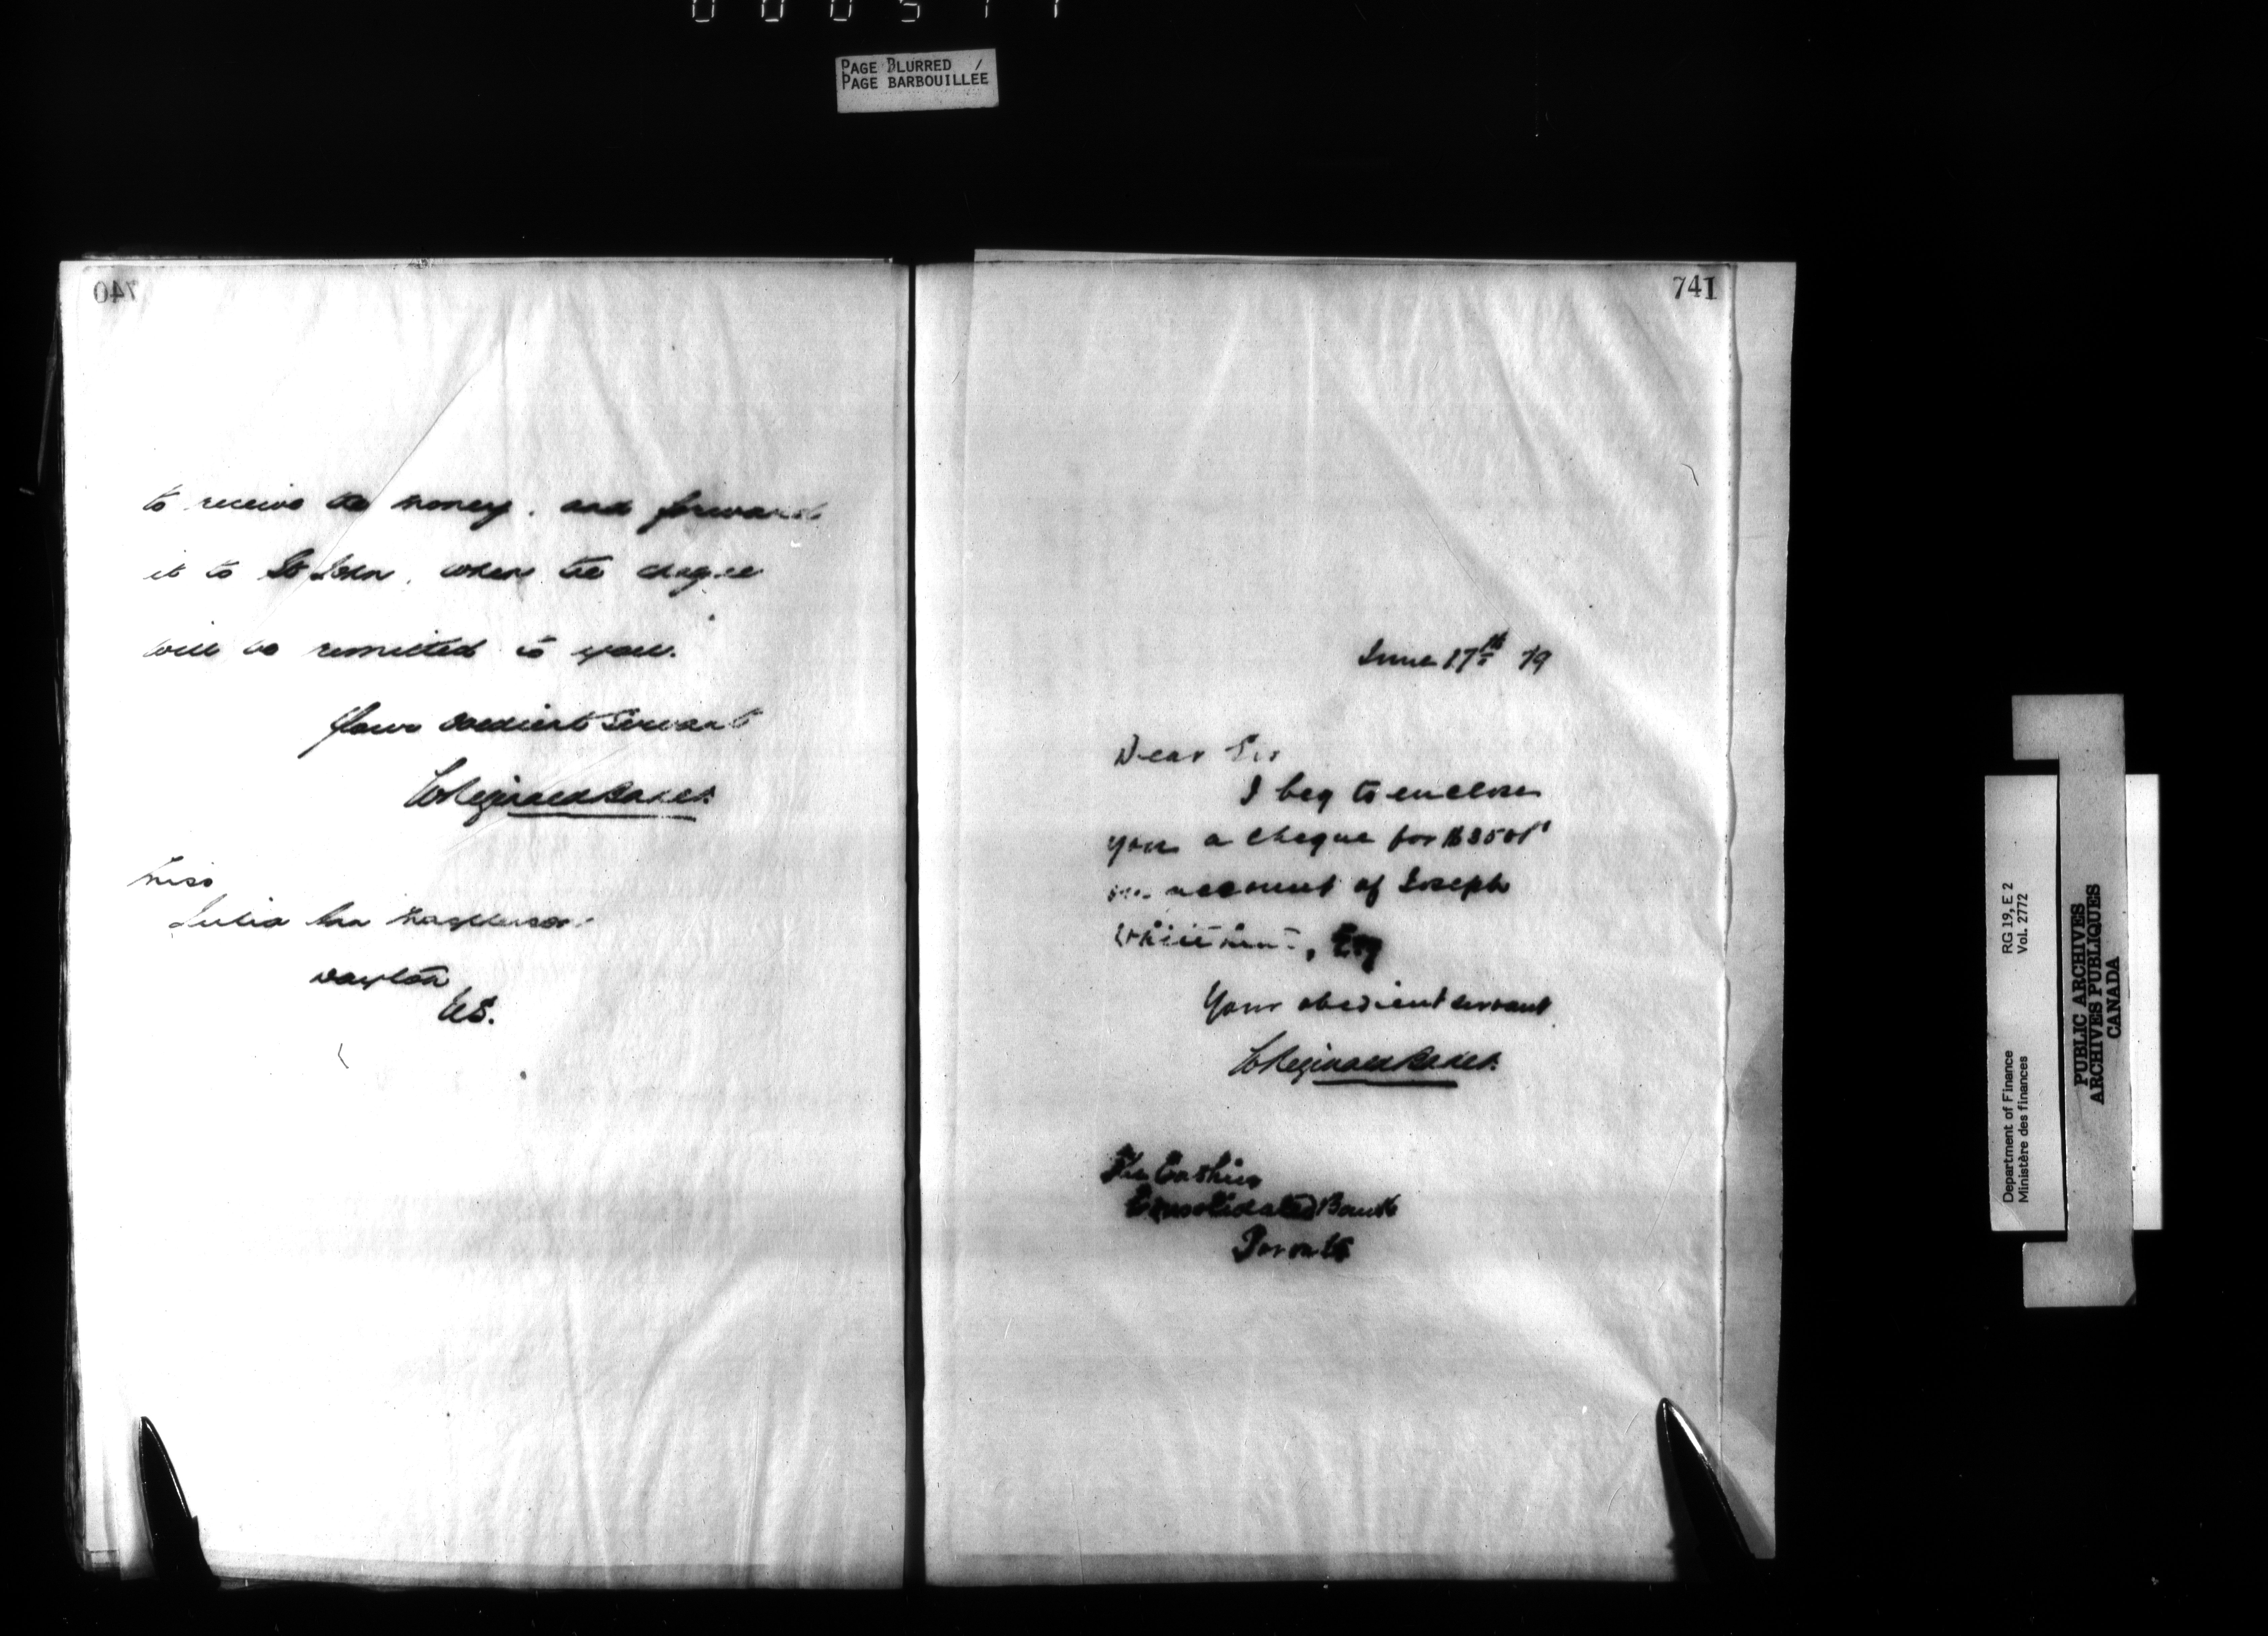 PAGE BLURRED
PAGE BARBOUILLÉE
740
to receive the money, and forward
it to St John, when the cheque
will be remitted to you.
Your obedient Servant
W Reginald Baker
Miss
Julia Ann
Dayton
US.
741
June 17th 79
Dear Sir
I beg to enclose
you a cheque for
on account of Joseph
Esq
Your obedient servant
W Reginald Baker
The Cashier
Consolidated Bank
Toronto
Department of Finance RG 19, E 2
Ministère des finances Vol. 2772
PUBLIC ARCHIVES
ARCHIVES PUBLIQUES
CANADA